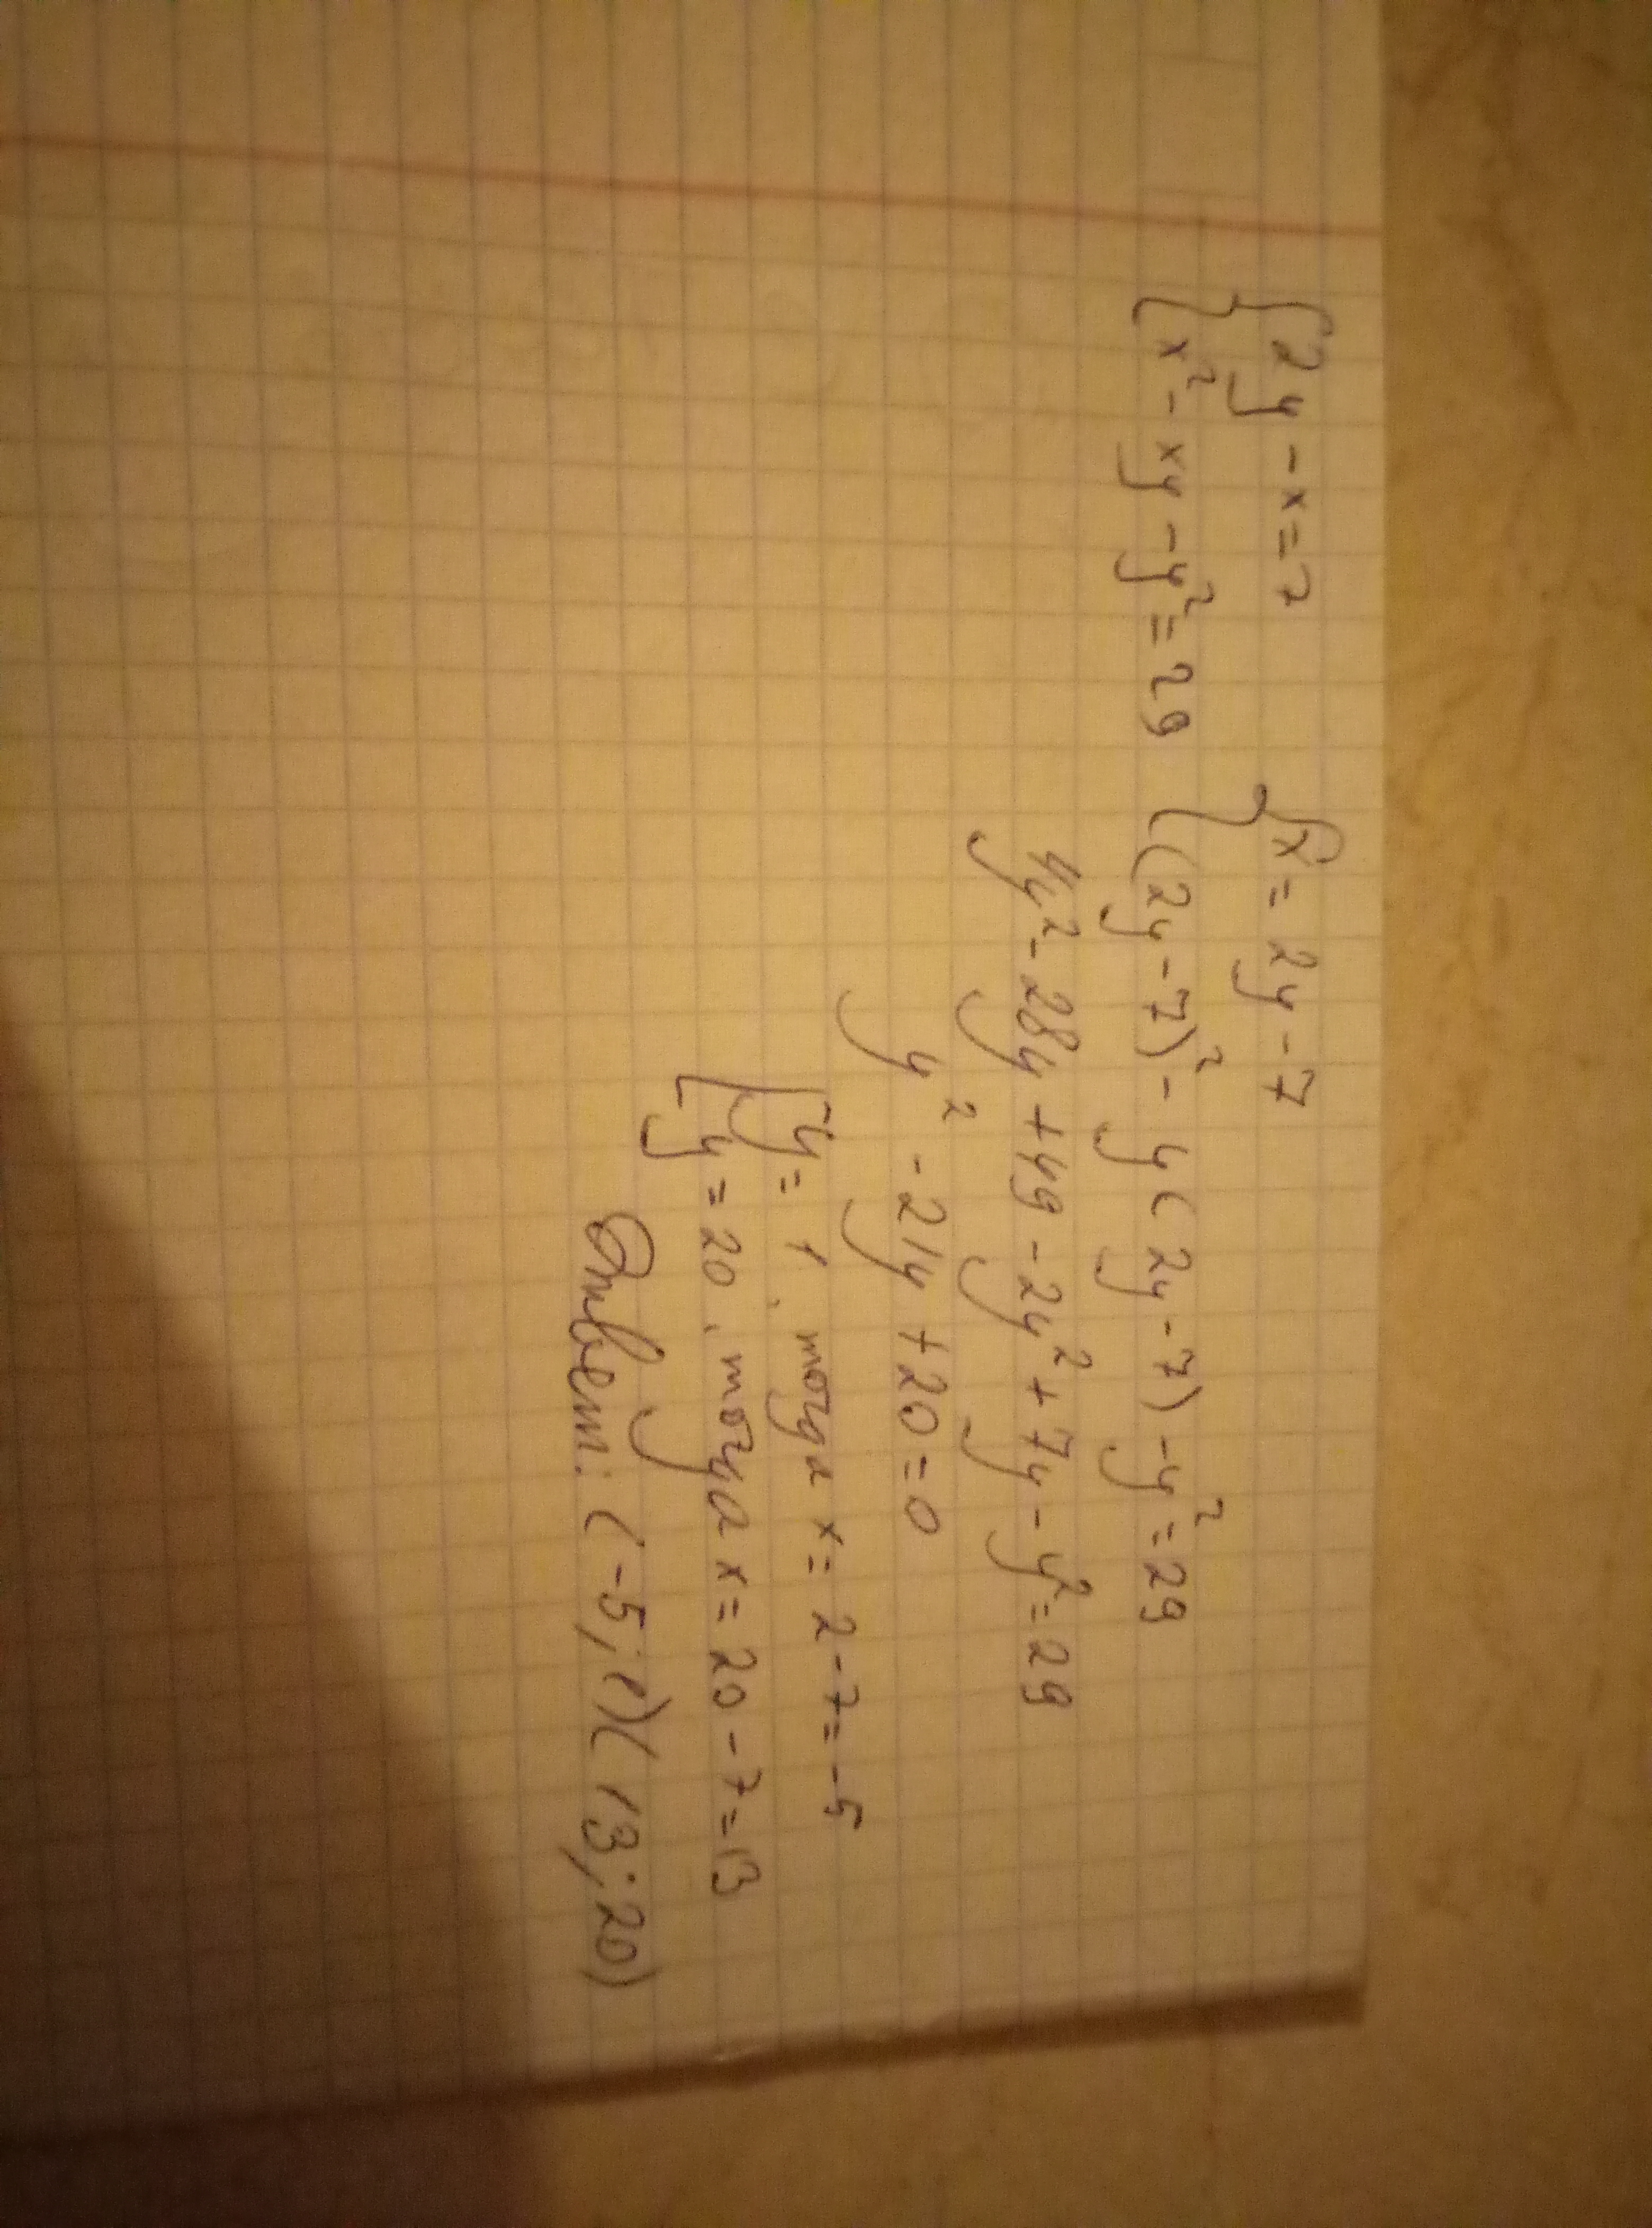 {2y - x = 7 {x = 2y - 7
{x² - xy - y² = 29 {(2y - 7)² - y(2y - 7) - y² = 29
4y² - 28y + 49 - 2y² + 7y - y² = 29
y² - 21y + 20 = 0
[y = 1, тогда x = 2 - 7 = -5
[y = 20, тогда x = 20 - 7 = 13
Ответ: (-5; 1)(13; 20)